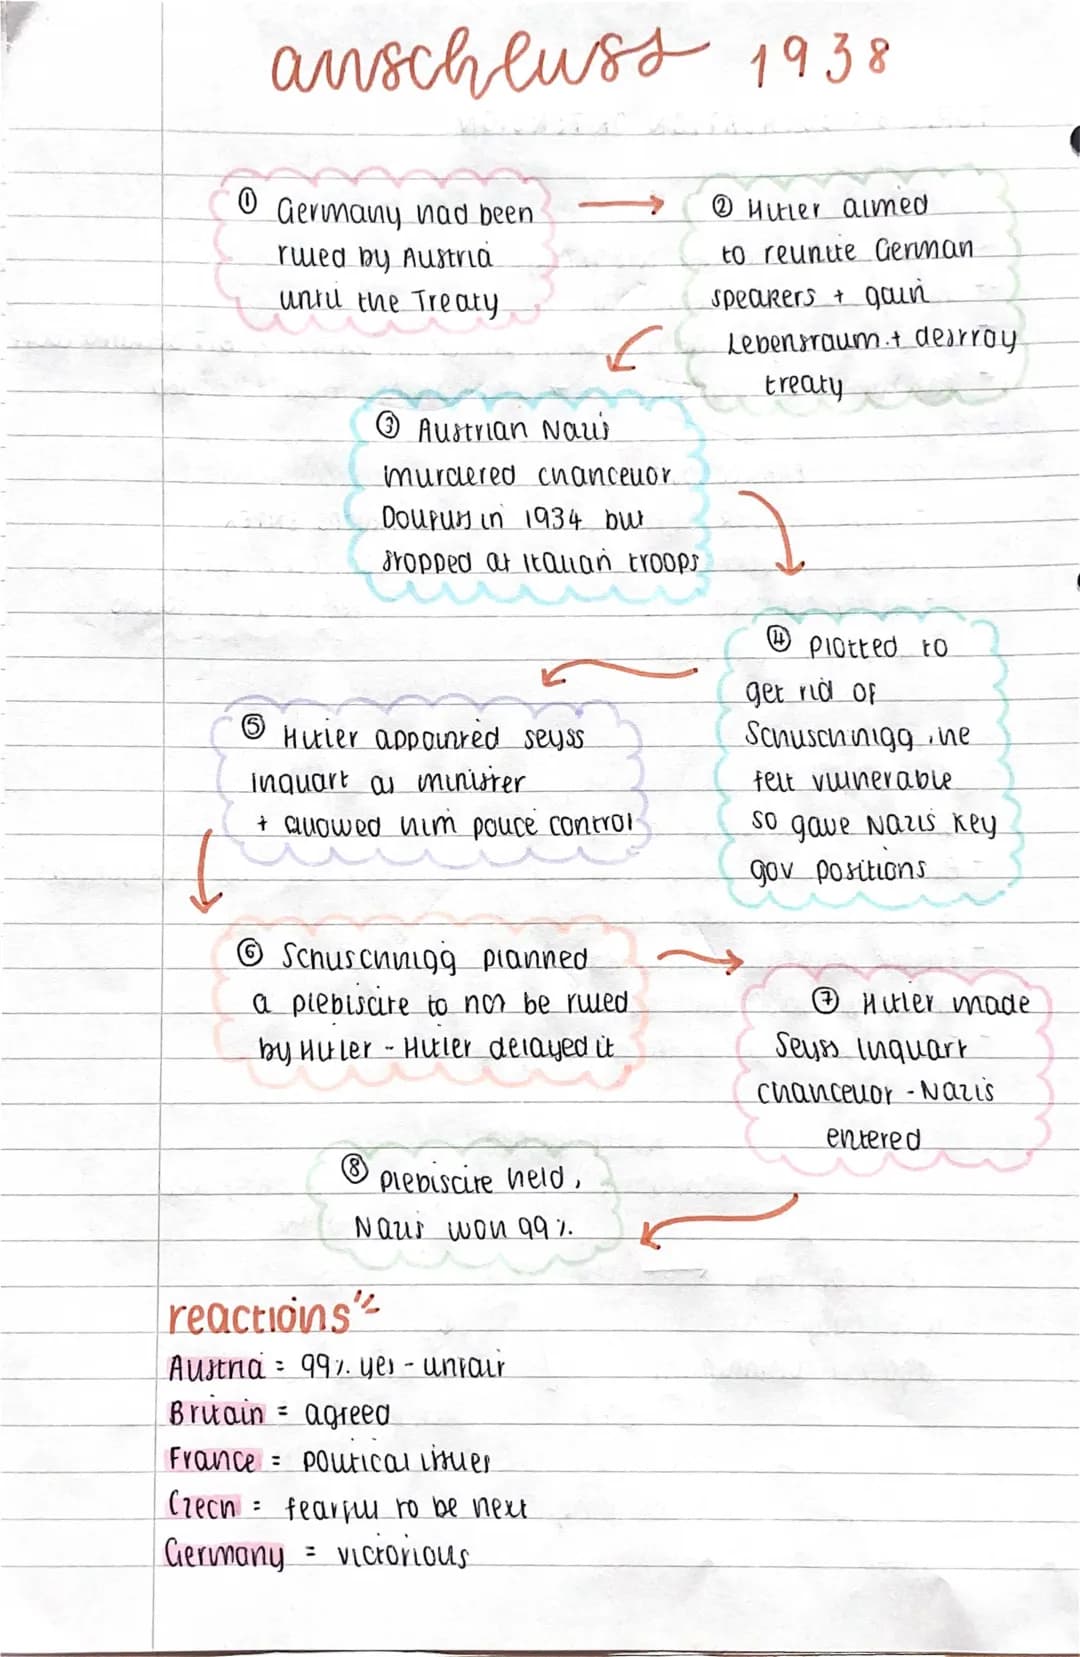 anschluss 1938
① Germany had been
ruled by Austria
until the Treaty
② Hitler aimed
to reunite German
speakers + gain
Lebensraum + destroy
treaty
③ Austrian Nazis
murdered chancellor
Dollfuss in 1934 but
stopped at Italian troops
④ Plotted to
get rid of
Schuschnigg, he
felt vulnerable
so gave Nazis key
gov positions
⑤ Hitler appointed seyss
inquart as minister
+ allowed him police control
⑥ Schuschnigg planned
a plebiscite to not be ruled
by Hitler - Hitler delayed it
⑦ Hitler made
Seyss Inquart
chancellor - Nazis
entered
⑧ plebiscite held,
Nazis won 99%.
reactions
Austria = 99% yes - unfair
Britain = agreed
France = political issues
Czech = fearful to be next
Germany = victorious